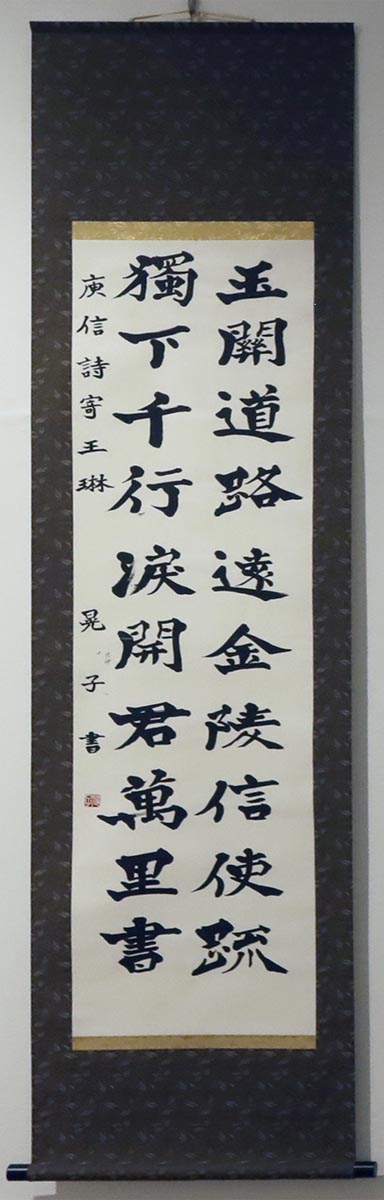 玉關道路遠金陵信使疏
獨下千行淚開君萬里書
庾信詩寄王琳 晃子書